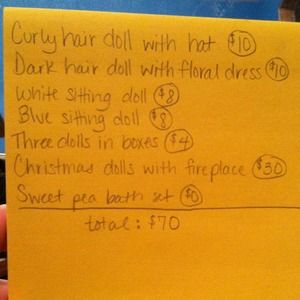 Curly hair doll with hat $10
Dark hair doll with floral dress $10
White sitting doll $8
Blue sitting doll $8
Three dolls in boxes $4
Christmas dolls with fireplace $30
Sweet pea bath set $0
total: $70